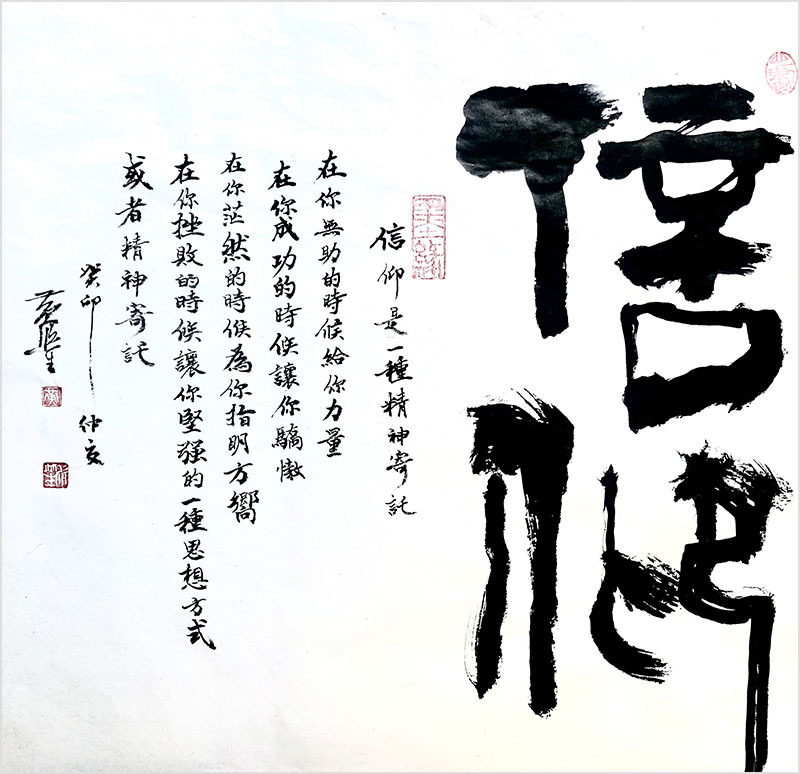 信仰
信仰是一種精神寄託
在你無助的時候給你力量
在你成功的時候讓你驕傲
在你茫然的時候為你指明方嚮
在你挫敗的時候讓你堅强的一種思想方式
或者精神寄託
癸卯仲夏